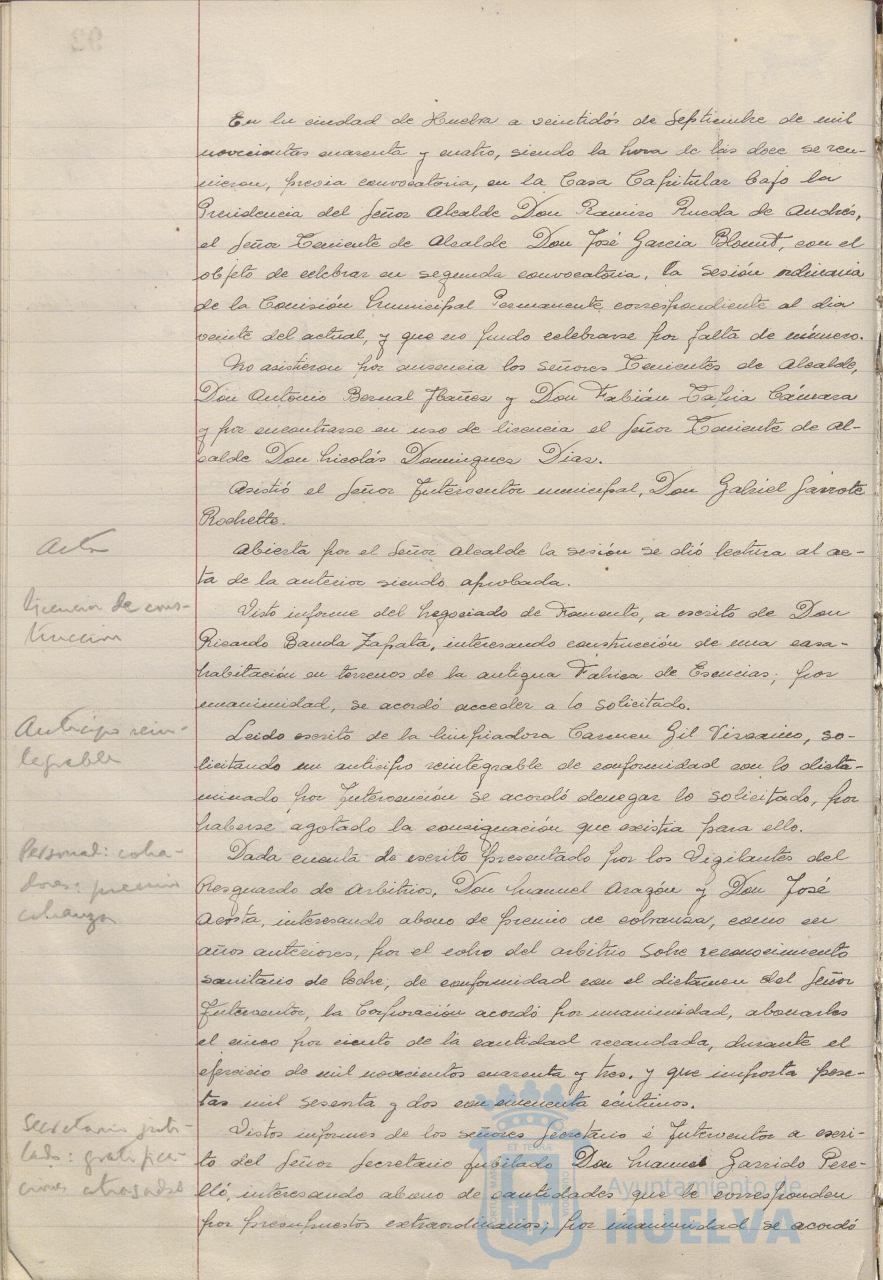 En la ciudad de Huelva a veintidós de Septiembre de mil
novecientos cuarenta y cuatro, siendo la hora de las doce se reu-
nieron, previa convocatoria, en la Casa Capitular bajo la
Presidencia del Señor Alcalde Don Ramiro Rueda de Andrés,
el Señor Teniente de Alcalde Don José Garcia Blomut, con el
objeto de celebrar en segunda convocatoria, la sesión ordinaria
de la Comisión Municipal Permanente correspondiente al dia
veinte del actual, y que no pudo celebrarse por falta de número.
No asistieron por ausencia los señores Tenientes de Alcalde,
Don Antonio Bernal Ibañez y Don Fabián Tapia Cámara
y por encontrarse en uso de licencia el Señor Teniente de Al-
calde Don Nicolás Dominguez Diaz.
Asistió el Señor Interventor municipal, Don Gabriel Garrote
Rochette.
Acta
Abierta por el Señor Alcalde la sesión se dió lectura al ac-
ta de la anterior siendo aprobada.
Licencia de cons-
trucción
Visto informe del Negociado de Fomento, a escrito de Don
Ricardo Banda Zapata, interesando construcción de una casa-
habitación en terrenos de la antigua Fabrica de Esencias; por
unanimidad, se acordó acceder a lo solicitado.
Anticipo rein-
tegrable
Leido escrito de la limpiadora Carmen Gil Vizcaino, so-
licitando un anticipo reintegrable de conformidad con lo dicta-
minado por Intervención se acordó denegar lo solicitado, por
haberse agotado la consignación que existia para ello.
Personal: cobra-
dores: premio
cobranza
Dada cuenta de escrito presentado por los Vigilantes del
Resguardo de Arbitrios, Don Manuel Aragón y Don José
Acosta, interesando abono de premio de cobranza, como en
años anteriores, por el cobro del arbitrio sobre reconocimiento
sanitario de leche; de conformidad con el dictamen del Señor
Interventor, la Corporación acordó por unanimidad, abonarles
el cinco por ciento de la cantidad recaudada, durante el
ejercicio de mil novecientos cuarenta y tres, y que importa pese-
tas mil sesenta y dos con cincuenta céntimos.
Secretario jubi-
lado: gratifica-
ciones atrasadas
Vistos informes de los señores Secretario é Interventor a escri-
to del Señor Secretario jubilado Don Manuel Garrido Pere-
lló, interesando abono de cantidades que le corresponden
por presupuestos extraordinarios; por unanimidad se acordó
Ayuntamiento de
HUELVA